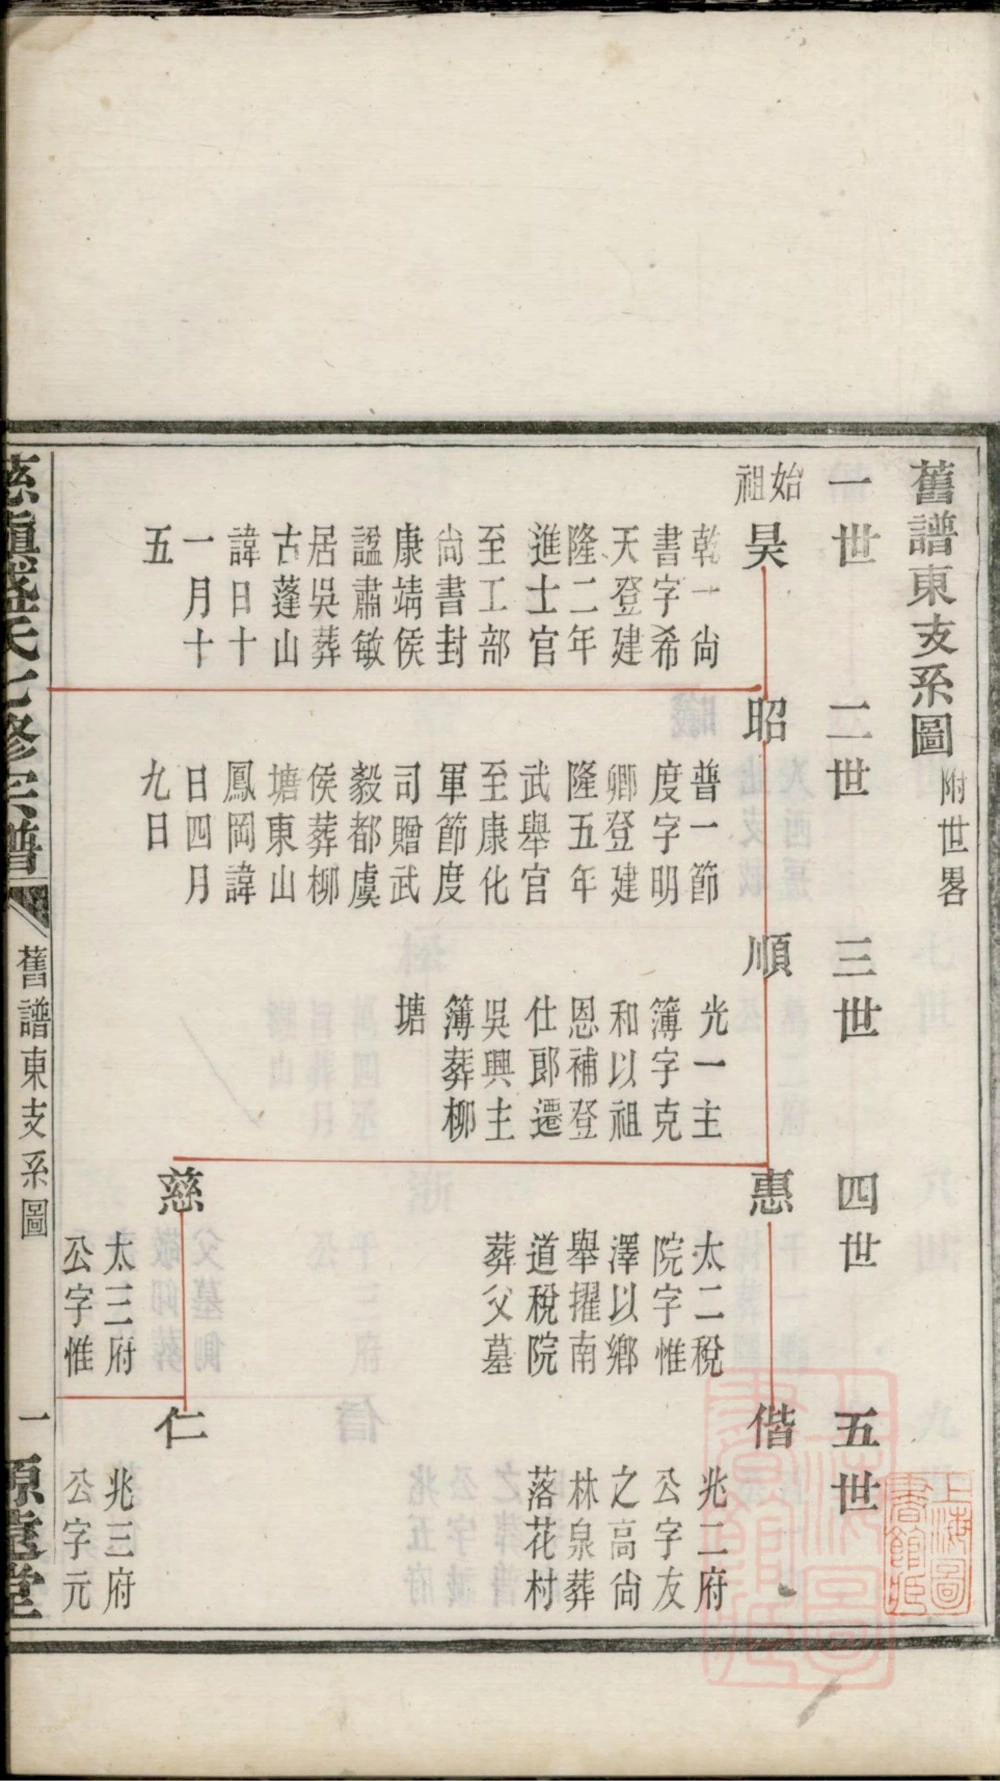 舊譜東支系圖附世畧
一世
始祖
昊
乾一尚
書字希
天登建
隆二年
進士官
至工部
尚書封
康靖侯
謚肅敏
居吳葬
古蓬山
諱日十
一月十
五
二世
昭
普一節
度字明
卿登建
隆五年
武舉官
至康化
軍節度
司贈武
毅都虞
侯葬柳
塘東山
鳳岡諱
日四月
九日
三世
順
光一主
簿字克
和以祖
恩補登
仕郎遷
吳興主
簿葬柳
塘
四世
惠
太二稅
院字惟
澤以鄉
舉擢南
道稅院
葬父墓
慈
太三府
公字惟
五世
偕
兆二府
公字友
之高尚
林泉葬
落花村
仁
兆三府
公字元
慈鎮盛氏七修宗譜
舊譜東支系圖
一
源遠堂
上海圖書館藏